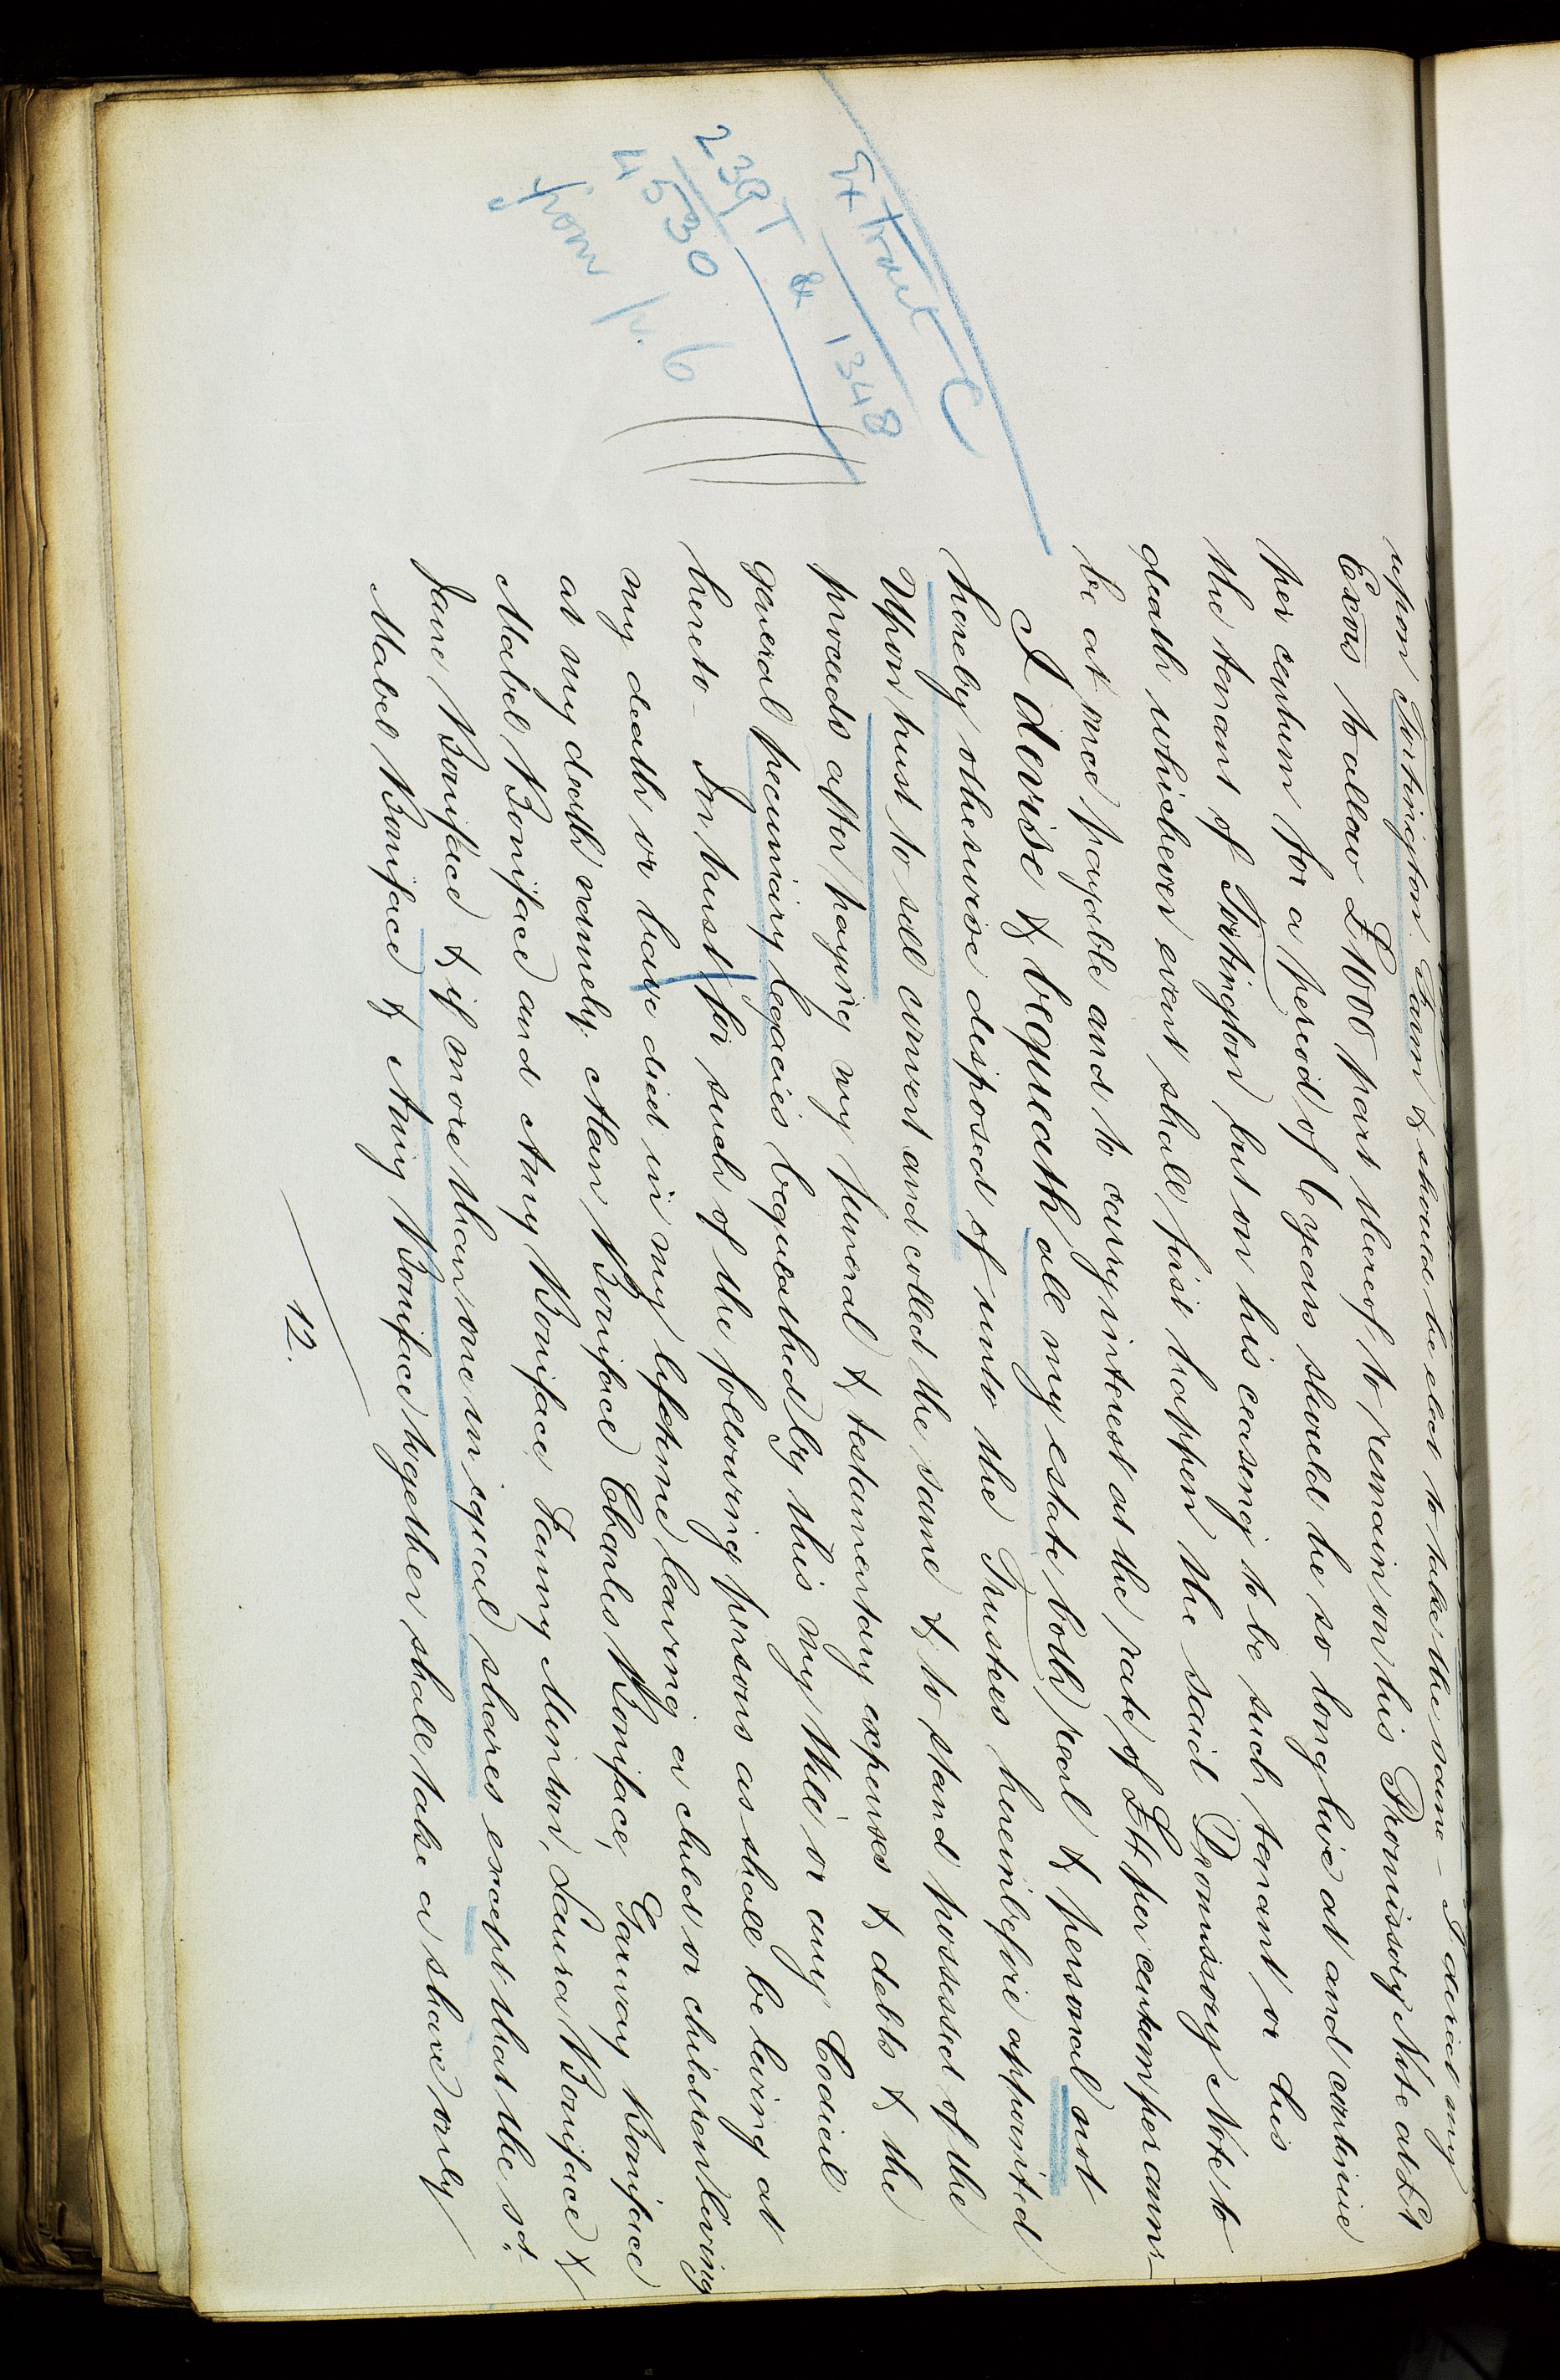 upon Tortington Farm & should he elect to take the same – I direct my
Exors to allow £1000 part thereof to remain on his Promissory Note at £4
per centum for a period of 6 years should he so long live at and continue
the tenant of Tortington but on his ceasing to be such tenant or his
death whichever event shall first happen the said Promissory Note to
be at once payable and to carry interest at the rate of £4 per centum per annm
I devise & bequeath all my estate both real & personal not
hereby otherwise disposed of unto the Trustees hereinbefore appointed
Upon trust to sell convert and collect the same & to stand possessed of the
proceeds after paying my funeral & testamentary expenses & debts & the
general pecuniary legacies bequeathed by this my Will or any Codicil
hereto – In trust for such of the following persons as shall be living at
my death or have died in my lifetime leaving a child or children living
at my death namely: Alan Boniface Charles Boniface, Garway Boniface
Mabel Boniface and Amy Boniface Fanny Minton, Laura Boniface &
Jane Boniface & if more than one in equal shares except that the sd.
Mabel Boniface & Amy Boniface together shall take a share only
12.
Extract C
1348
2391 &
4530
from p. 6